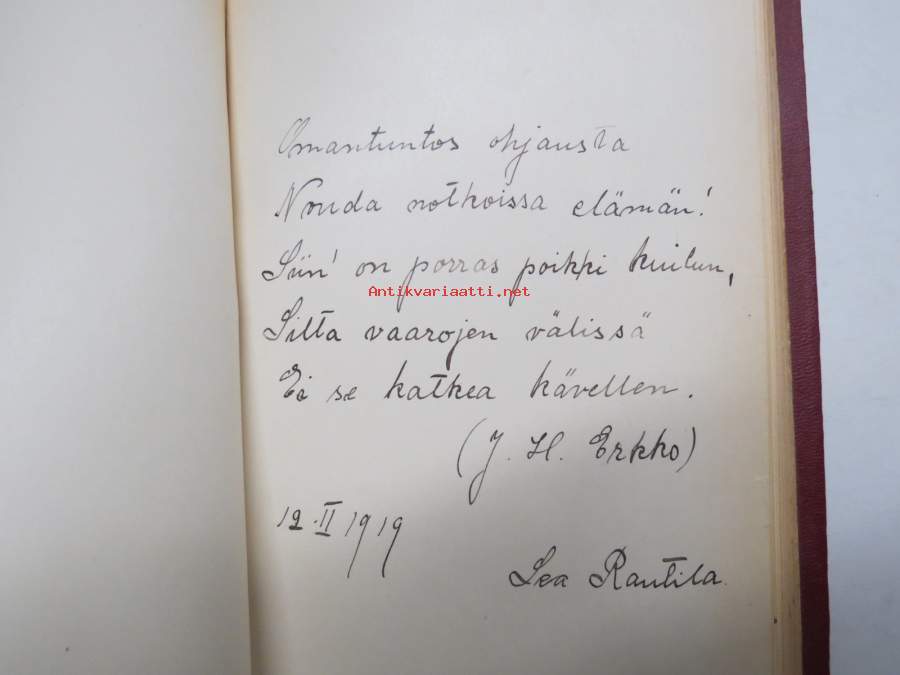 Omantuntos ohjausta
Nouda notkoissa elämän!
Siin' on porras poikki kuilun,
Antikvariaatti.net
Silta vaarojen välissä
Ei se katkea kävellen.
(J. H. Erkko)
12.II 1919
Lea Rautila.